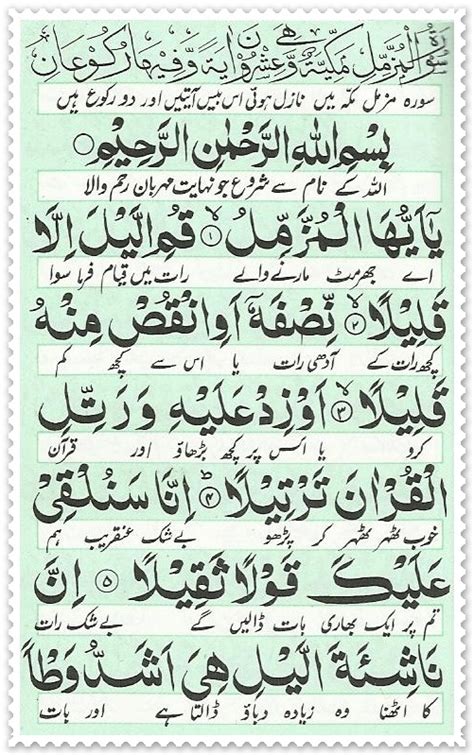 سورة المزمل مكية وهي عشرون اية وفيها ركوعان
سورہ مزمل مکہ میں نازل ہوئی اس بیس آیتیں اور دو رکوع ہیں
بِسْمِ اللهِ الرَّحْمٰنِ الرَّحِيْمِ
اللہ کے نام سے شروع جو نہایت مہربان رحم والا
يٰۤاَيُّهَا الْمُزَّمِّلُ ۙ۱ قُمِ الَّيْلَ اِلَّا
اے جھرمٹ مارنے والے رات میں قیام فرما سوا
قَلِيْلًا ۙ۲ نِّصْفَهٗۤ اَوِ انْقُصْ مِنْهُ
کچھ رات کے آدھی رات یا اس سے کچھ کم
قَلِيْلًا ۙ۳ اَوْ زِدْ عَلَيْهِ وَرَتِّلِ
کرو یا اس پر کچھ بڑھاؤ اور قرآن
الْقُرْاٰنَ تَرْتِيْلًا ؕ۴ اِنَّا سَنُلْقِيْ
خوب ٹھہر ٹھہر کر پڑھو بے شک عنقریب ہم
عَلَيْكَ قَوْلًا ثَقِيْلًا ۵ اِنَّ
تم پر ایک بھاری بات ڈالیں گے بے شک رات
نَاشِئَةَ الَّيْلِ هِيَ اَشَدُّ وَطْاً
کا اٹھنا وہ زیادہ دباؤ ڈالتا ہے اور بات